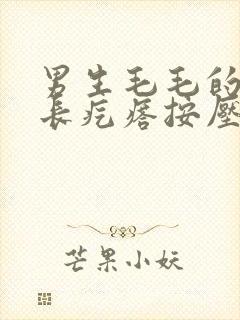 男生毛毛的
长疙瘩按压
芒果小妖